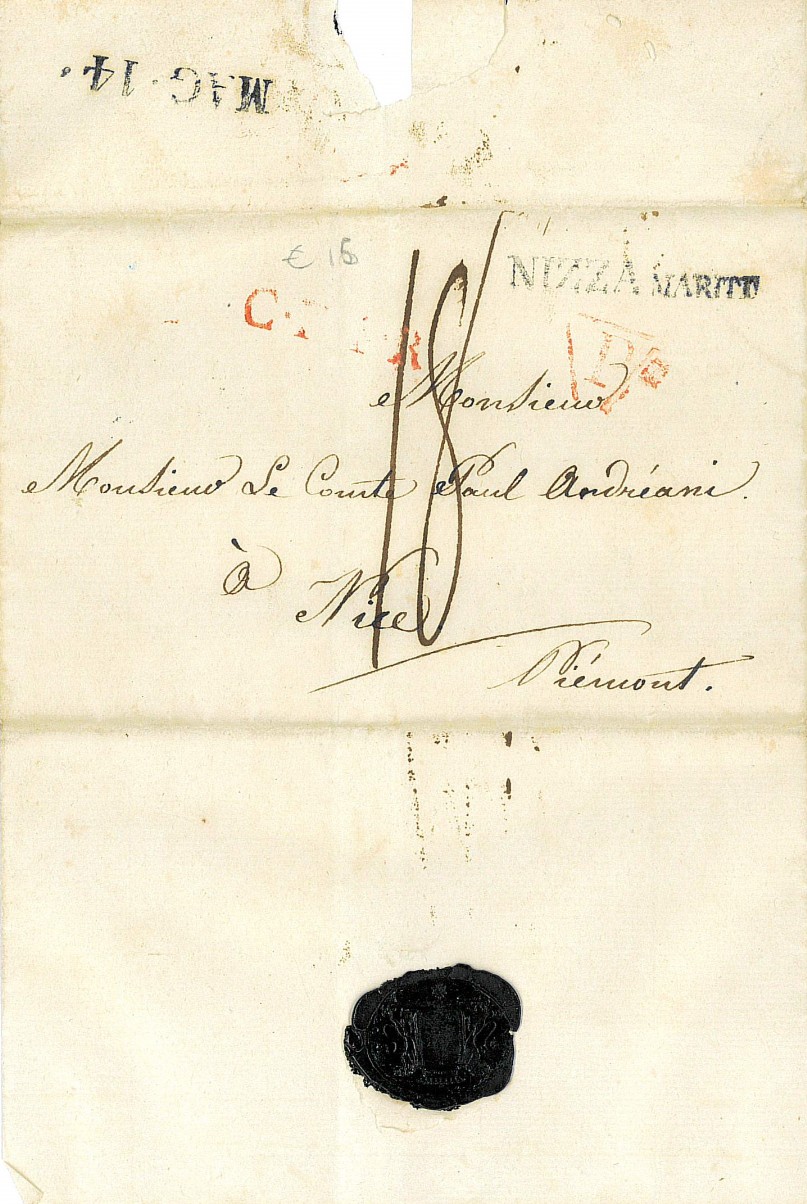 MAG. 14.
€ 15
NIZZA MARITT
C.F.3.R
18
Monsieur
Monsieur Le Comte Paul Andréani.
à Nice
Piémont.